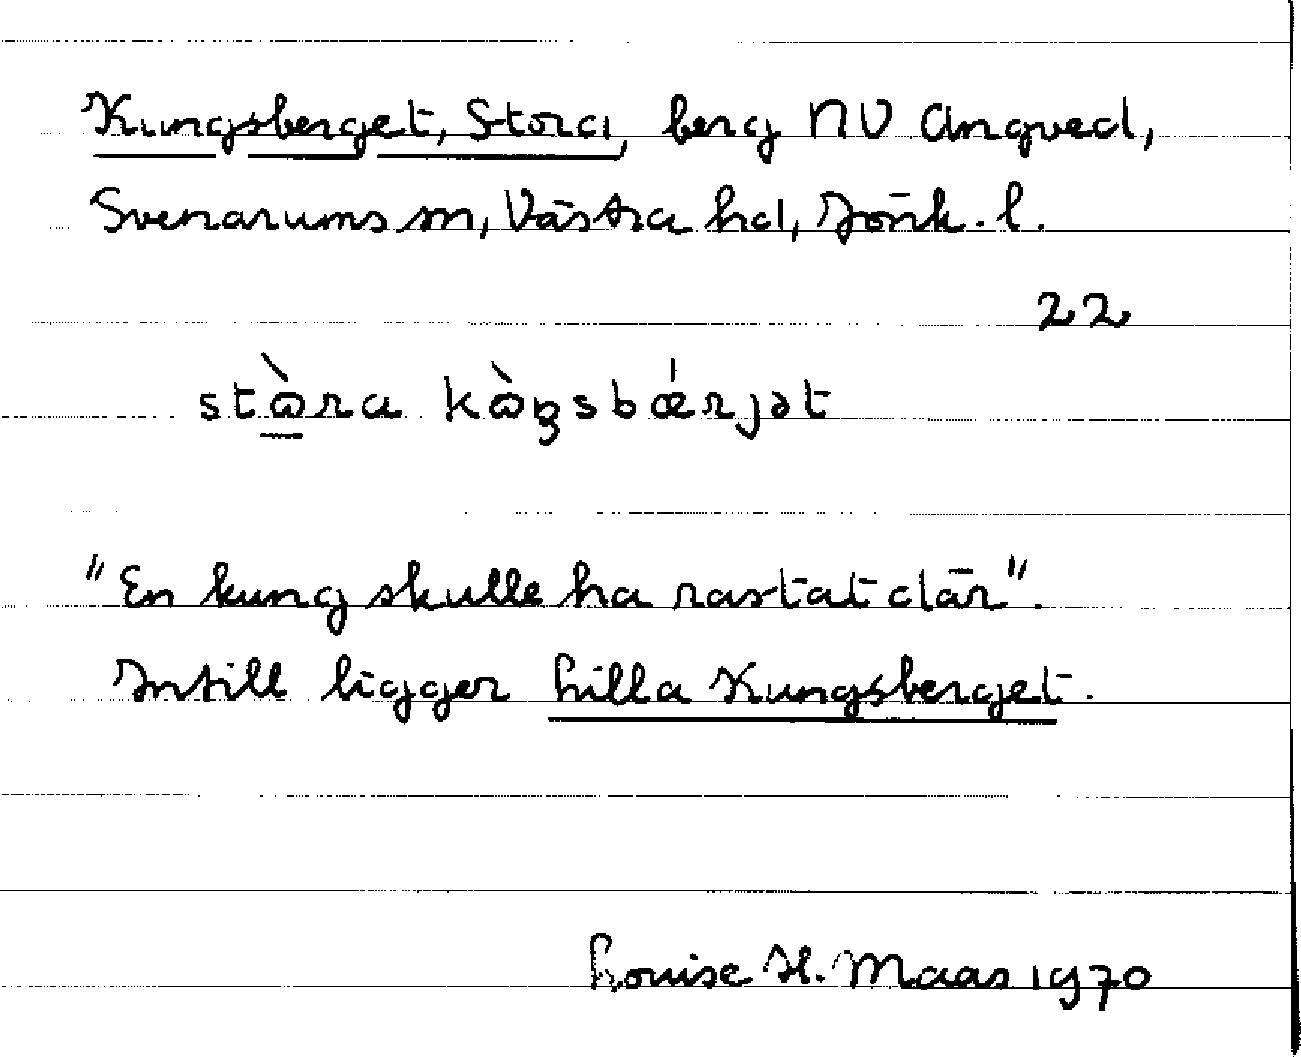 Kungsberget, Stora, berg NV Angved,
Svenarums sn, Västra hd, Jönk. l.
22
stɷ̀ra kɷ̀ŋsbǿrjət
"En kung skulle ha rastat där".
Intill ligger Lilla Kungsberget.
Louise H. Maas 1970